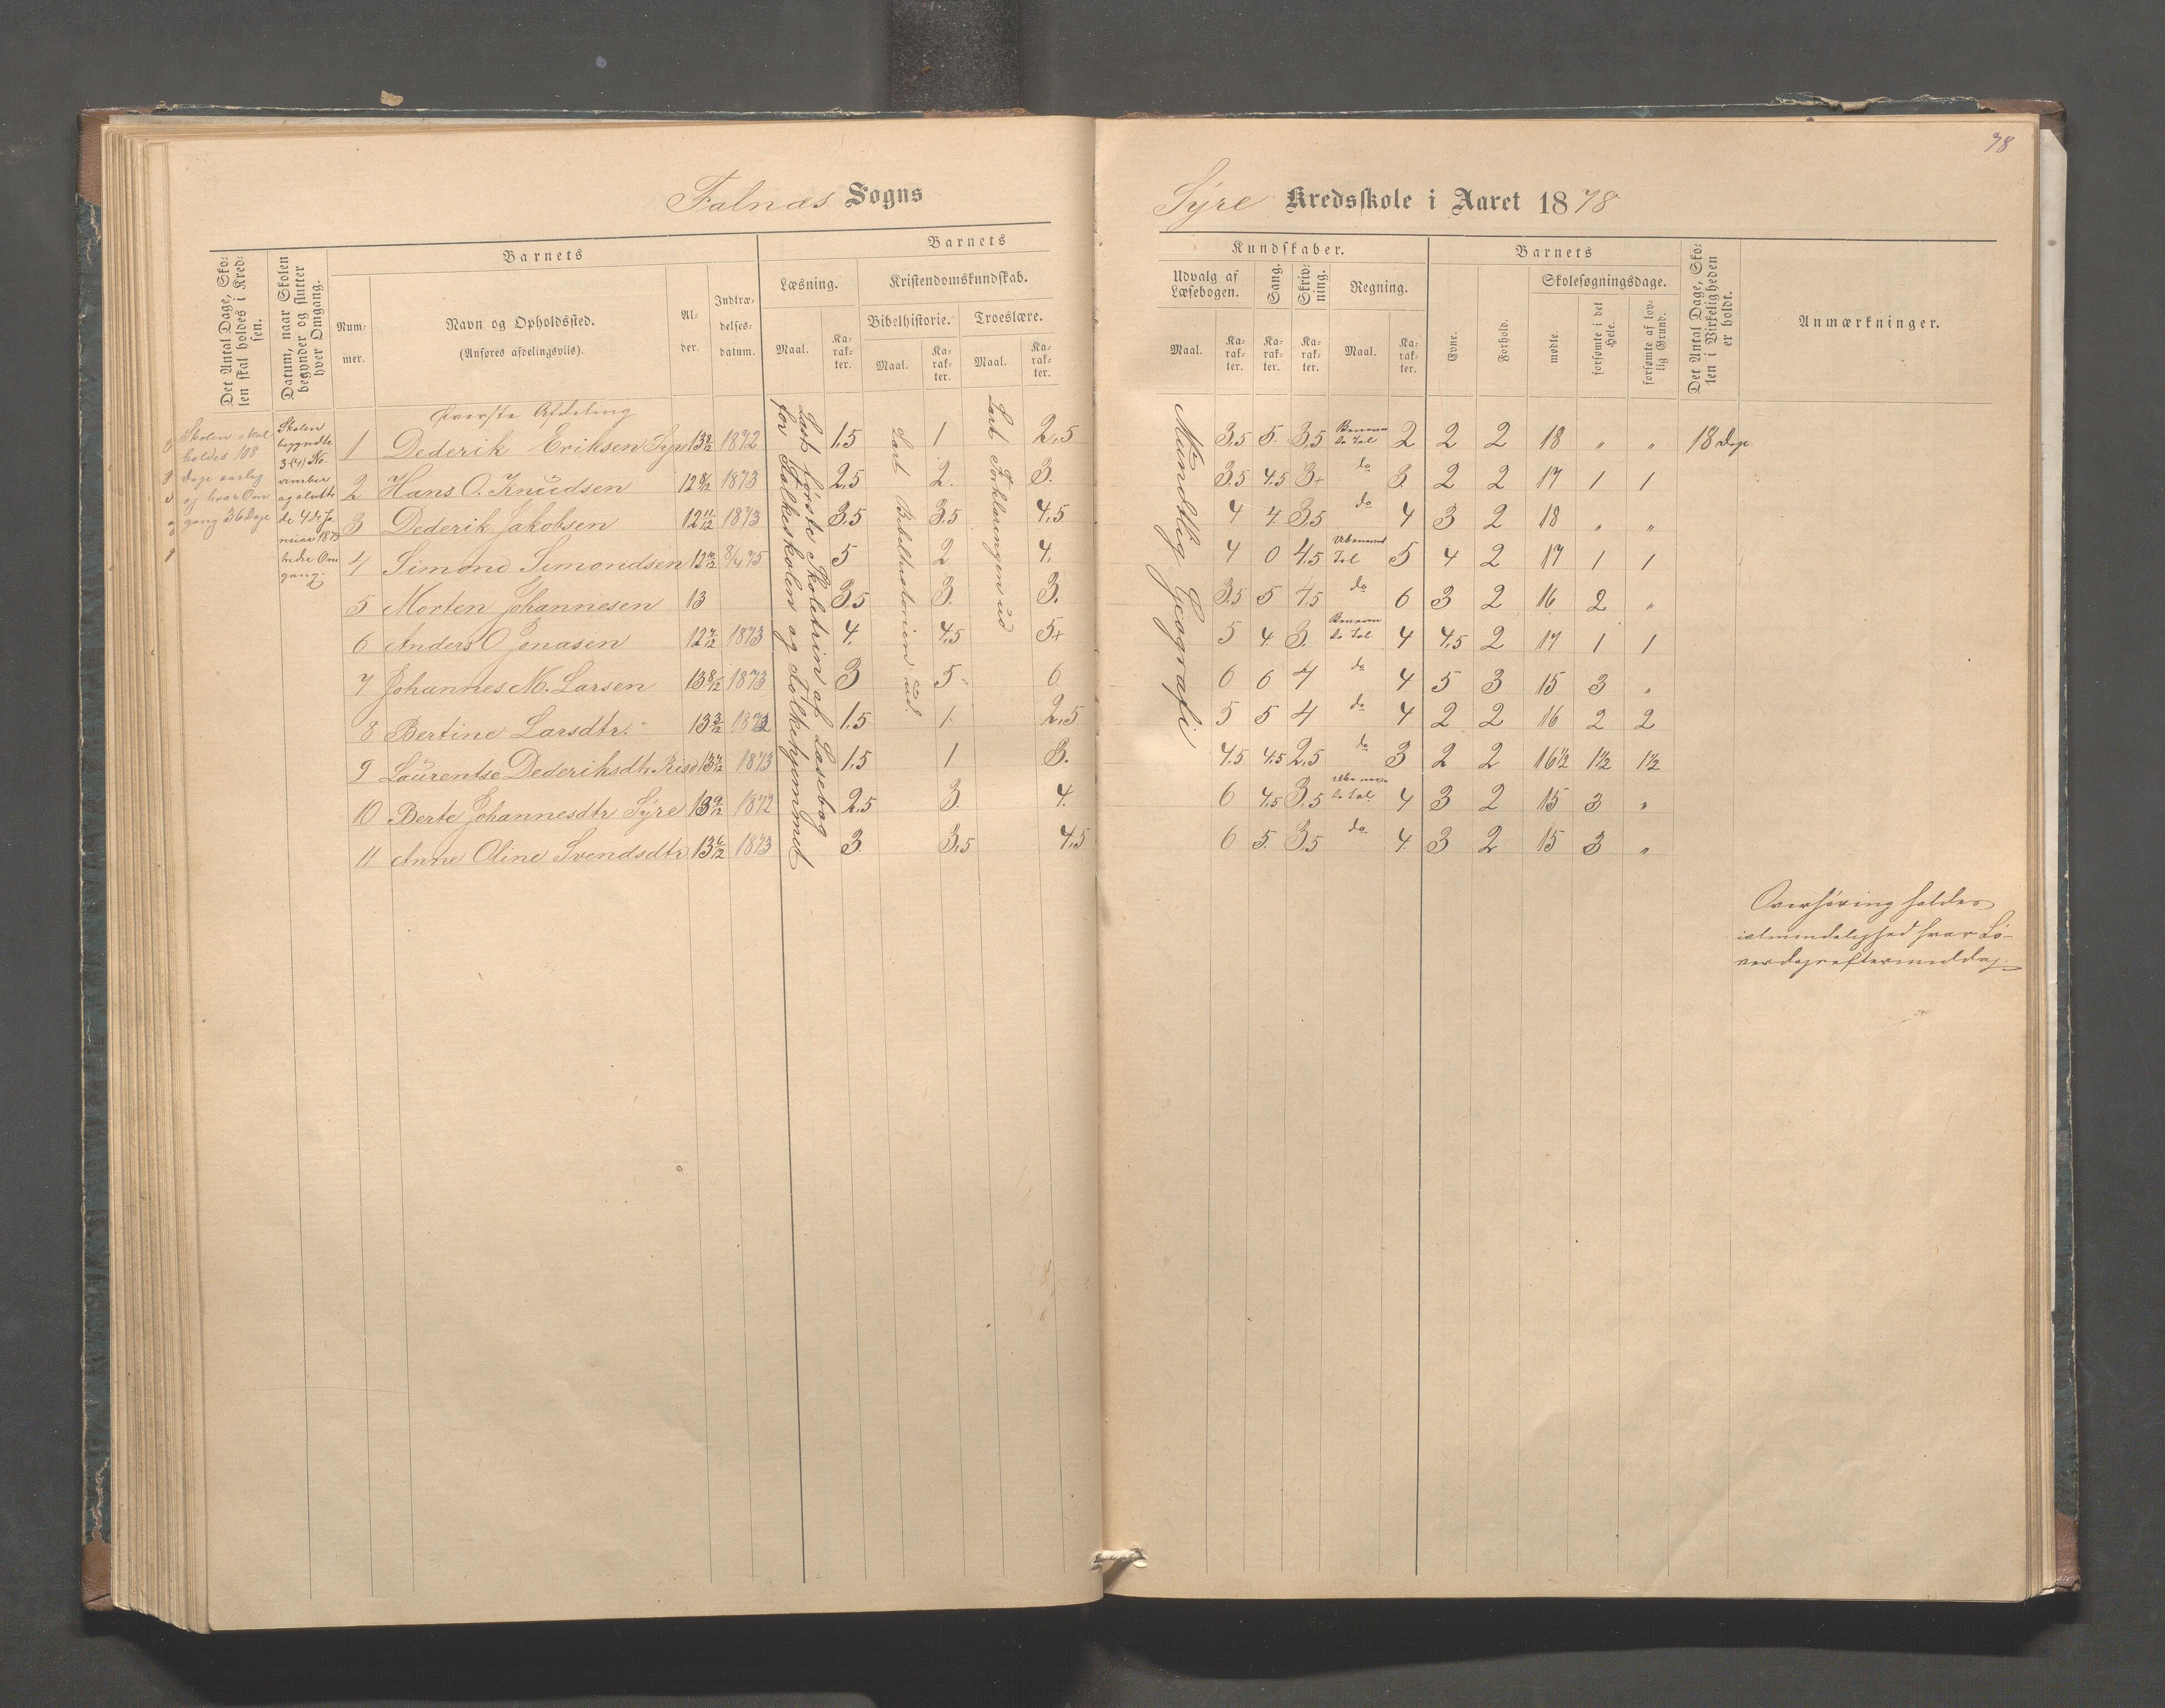 78
Falnæs Sogns
Syre Kredsskole i Aaret 1878
Det Antal Dage, Skolen skal holdes i Kredsen.
Datum, naar Skolen begynder og slutter hver Omgang.
Barnets
Nummer.
Navn og Opholdssted.
(Anføres afdelingsviis).
Alder.
Indtrædelsesdatum.
Barnets
Læsning.
Maal.
Karakter.
Kristendomskundskab.
Bibelhistorie.
Maal.
Karakter.
Troeslære.
Maal.
Karakter.
Kundskaber.
Udvalg af Læsebogen.
Maal.
Karakter.
Sang.
Karakter.
Skrivning.
Karakter.
Regning.
Maal.
Karakter.
Barnets
Evne.
Forhold.
Skolesøgningsdage.
mødte.
forsømte i det Hele.
forsømte af lovlig Grund.
Det Antal Dage, Skolen i Virkeligheden er holdt.
Anmærkninger.
Skolen skal
holdes 108
Dage aarlig
og hver Om
gang 36 Dage
Skolen
begyndte
3-(4) No-
vember
og slutte
de 4de Ja
nuar 1879
tredie Om
gang.
øverste Afdeling
Læst første Skoletrin af Læsebog
for Folkeskolen og Folkehjemmet
Lært Bibelhistorien ud.
Lært Forklaringen ud
Mundtlig Geografi
1 Dederik Eriksen Syre 13 8/12 1872 1,5 1 2,5 3,5 5. 3,5 Benævn de Tal 2 2 2 18 " " 18 Dage
2 Hans O. Knudsen 12 8/12 1873 2,5 2. 3. 3,5 4,5 3+ do 3. 2 2 17 1 1
3 Dederik Jakobsen 12 11/12 1873 3,5 3,5 4,5 4 4. 3,5 do 4 3 2 18 " "
4 Simond Simondsen 8/4 75 5 2 4. 4 0 4,5 Ubenævnt Tal 5 4 2 17 1 1
5 Morten Johannesen 13 3,5 3. 3. 3,5 5 4,5 do 6 3 2 16 2 "
6 Anders O Jonasen 12 7/12 1873 4. 4,5 5+ 5 4. 3. Benævn de Tal 4 4,5 2 17 1 1
7 Johannes M. Larsen 13 8/12 1873 3 5 6 6 6 4 do 4 5 3 15 3 "
8 Bertine Larsdtr. 13 3/12 1872 1,5 1 2,5 5 5 4 do 4 2 2 16 2 2
9 Laurentse Dederiksdtr 13 7/12 1873 1,5 1 3. 4,5 4,5 2,5 do 3 2 2 16½ 1½ 1½
10 Berte Johannesdtr Syre 13 9/12 1872 2,5 3. 4. 6 4,5 3,5 4 3 2 15 3 "
11 Anne Oline Svendsdtr 13 6/12 1873 3 3,5 4,5 6 5. 3,5 do 4. 3 2 15 3 "
Overhøring holdes
ialmindelighed hver Lø-
verdagseftermiddag.